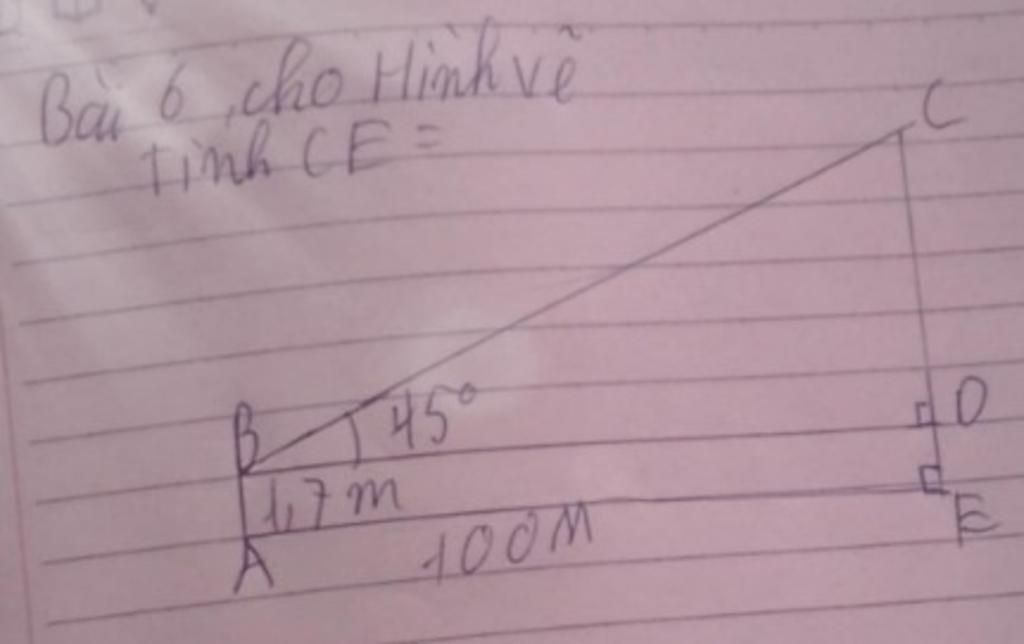 Bài 6, cho Hình vẽ
tính CE =
C
B
45°
D
1,7m
A
100M
E